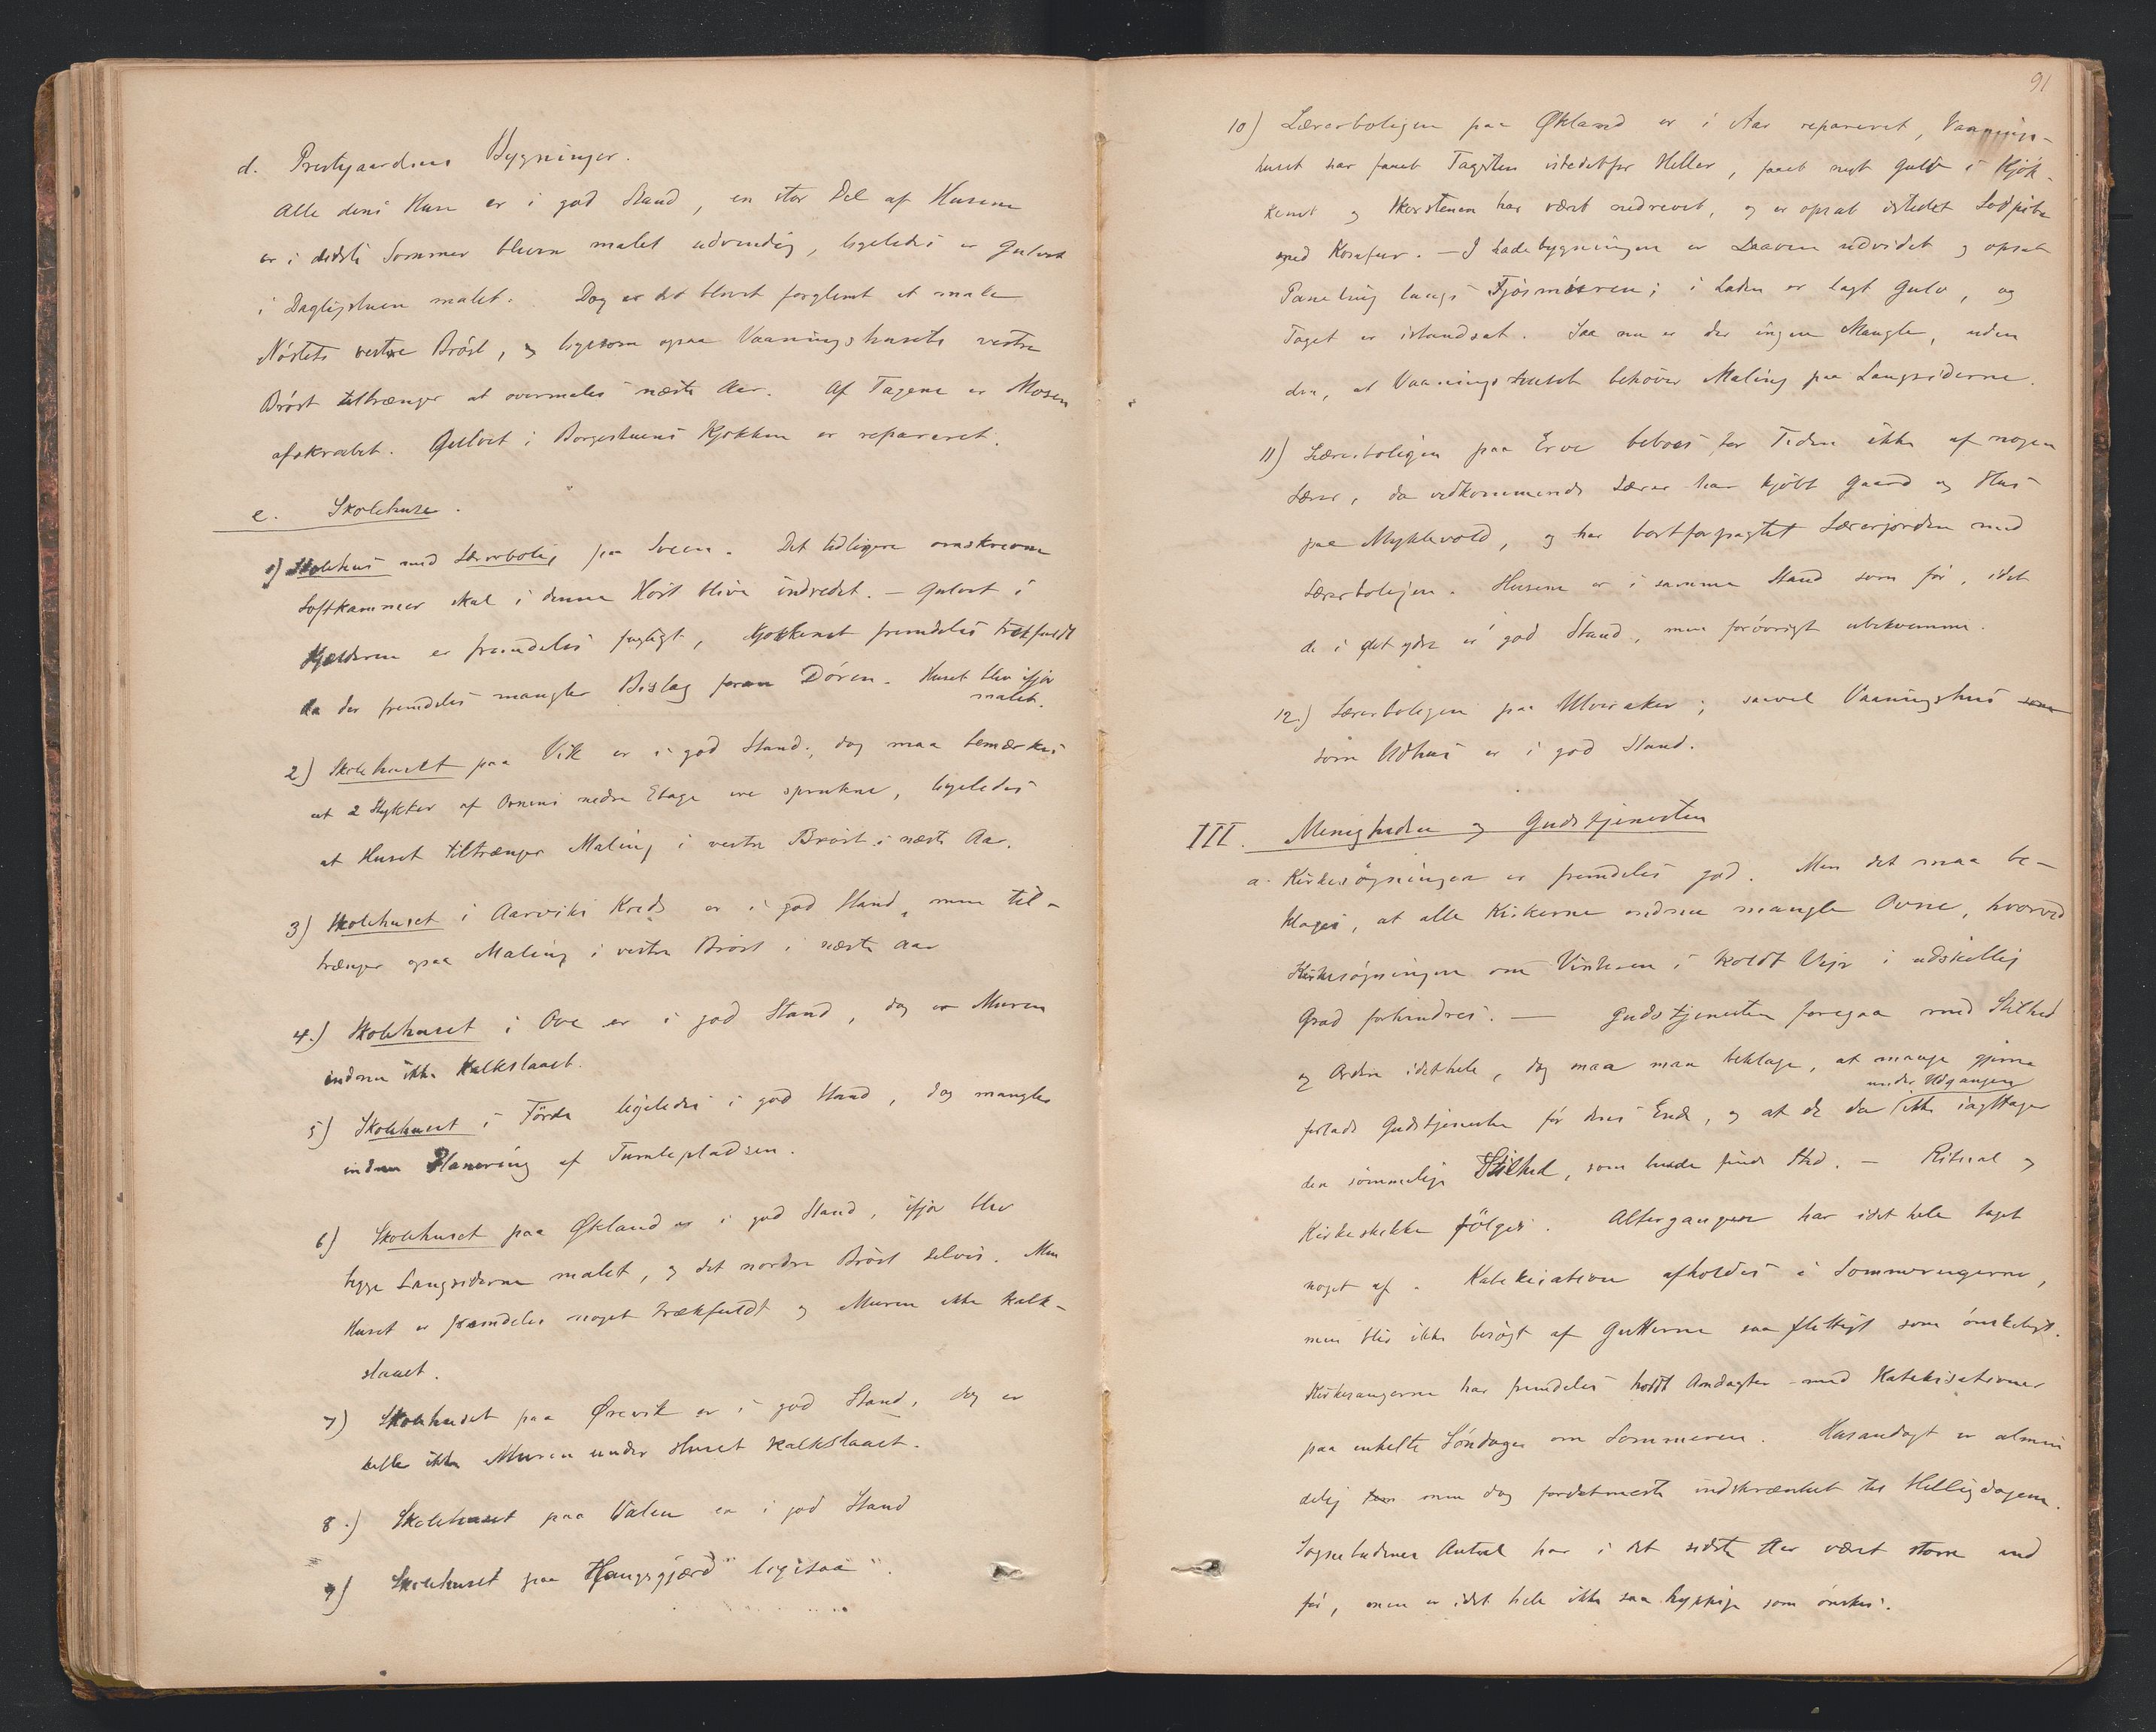 d. Prestgaardens Bygninger.
Alle dens Huse er i god Stand, en stor Del af Husene
er i sidste Sommer bleven malet udvendig, ligeledes er Gulvet
i Dagligstuen malet. Dog er det blevet forglemt at male
Nöstets vestre Bröst, og ligesom ogsaa Vaaningshusets vestre
Bröst tiltrænger at overmales næste Aar. Af Tagene er Mosen
afskrabet. Gulvet i Borgestuens Kjökken er repareret.
e. Skolehuse.
1) Skolehus med Lærerbolig paa Sveen. Det tidligere omskrevne
Loftkammer skal i denne Höst blive indredet. – Gulvet i
Kjælderen er fremdeles fugtigt, Kjökkenet fremdeles trækfuldt
da der fremdeles mangler Bislag foran Dören. Huset blev ifjor
malet.
2) Skolehuset paa Vik er i god Stand; dog maa bemærkes
at 2 Stykker af Ovnens nedre Etage ere sprukne, ligeledes
at Huset tiltrænger Maling i vestre Bröst i næste Aar.
3) Skolehuset i Aarviks Kreds er i god Stand, men til-
trænger ogsaa Maling i vestre Bröst i næste Aar
4.) Skolehuset i Ove er i god Stand, dog er Muren
endnu ikke Kalkslaaet.
5) Skolehuset i Förde ligeledes i god Stand, dog mangler
endnu Planering af Tumlepladsen.
6) Skolehuset paa Økland er i god Stand, ifjor blev
begge Langsiderne malet, og det nordre Bröst delvis. Men
Huset er fremdeles noget trækfuldt og Muren ikke kalk-
slaaet.
7) Skolehuset paa Ørevik er i god Stand, dog er
heller ikke Muren under Huset Kalkslaaet.
8.) Skolehuset paa Valen er i god Stand
9) Skolehuset paa Haugsgjærd ligesaa.
91
10) Lærerboligen paa Økland er i Aar repareret, Vaanings-
huset har faaet Tagsten istedetfor Heller, faaet nyt Gulv i Kjök-
kenet og Skorstenen har været nedrevet, og er opsat istedet Lodpibe
med Komfur. – I Ladebygningen er Laaven udvidet og opsat
Paneling langs Fjösmuren; i Laden er lagt Gulv, og
Taget er istandsat. Saa nu er der ingen Mangler, uden
den, at Vaaningshuset behöver Maling paa Langsiderne.
11) Lærerboligen paa Erve beboes for Tiden ikke af nogen
Lærer, da vedkommende Lærer har kjöbt Gaard og Hus
paa Myklevold, og har bortforpagtet Lærerjorden med
Lærerboligen. Husene er i samme Stand som för, idet
de i det ydre er i god Stand, men forövrigt ubekvemme.
12.) Lærerboligen paa Ulveraker; saavel Vaaningshus som
som Udhus er i god Stand.
III. Menigheden og Gudstjenesten
a. Kirkesögningen er fremdeles god. Men det maa be-
klages, at alle Kirkerne endnu mangler Ovne, hvorved
Kirkesögningen om Vinteren i koldt Vejr i udskillig
Grad forhindres. — Gudstjenesten foregaar med Stilhed
og Orden idethele, dog maa man beklage, at mange gjerne
under Udgangen
forlade Gudstjenesten för dens Ende, og at de da ikke iagttager
den sömmelige Stilhed, som burde finde Sted. – Ritual og
Kirkeskikke fölges. Altergangen har idethele taget
noget af. Katekisation afholdes i Sommerugerne,
men blir ikke besögt af Gutterne saa flittigt som önskeligt.
Kirkesangerne har fremdeles holdt Andagter med Katekisationer
paa enkelte Söndage om Sommeren. Husandagt er almin
delig men dog fordetmeste indskrænket til Helligdagene.
Sognebudenes Antal har i det sidste Aar været större end
för, men er idet hele ikke saa hyppige som önskes.